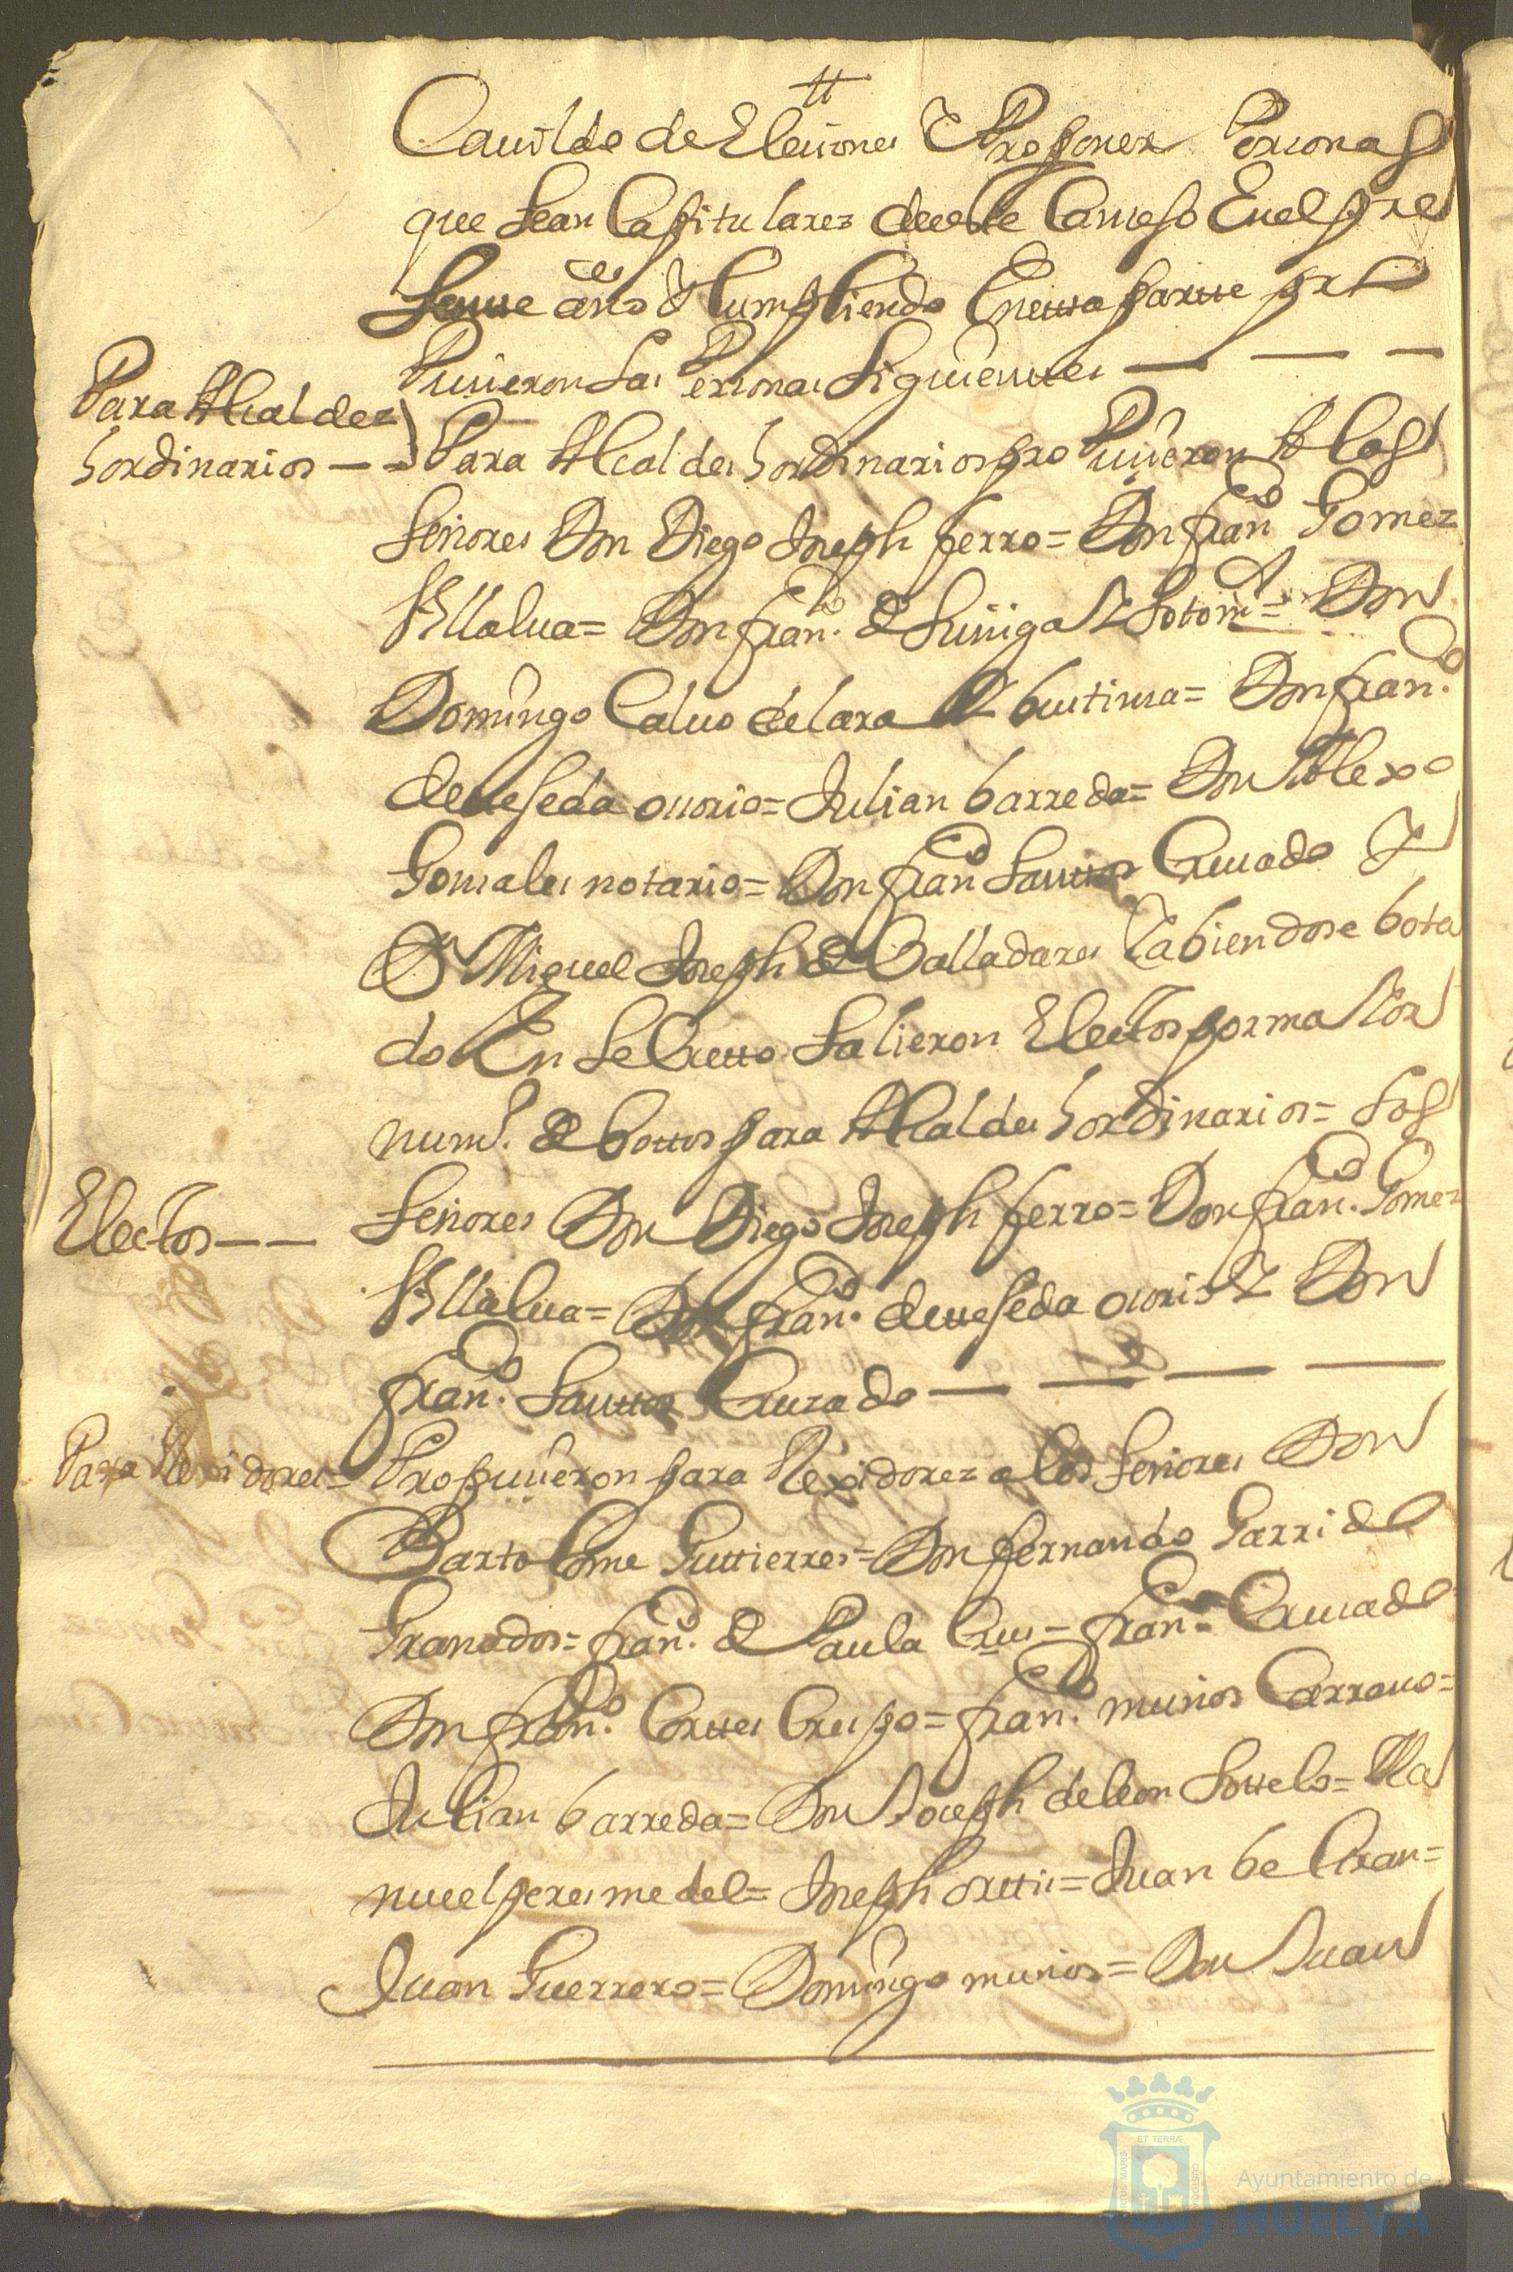 Cavildo de Eleciones Y Proponer Perzonas
que sean Capitulares deeste Conceso Enel pre
sentte año Y Cumpliendo Enestta partte pro
Pucieron las Perzonas Siguienttes
Para Alcaldez
hordinarios
Para Alcaldes hordinarios pro Pucieron A los
señores Don Diego Joseph ferro = Don franco Gomez
Villalua = Don franco. de suñiga Y Sotomr = Don
Domingo Calvo de lara Y buitima = Don franco.
deueseda ocorio = Julian barreda = Don Alexo
Gonsales notario = Don franco Santtos Crucado Y
Dn Miguel Joseph de Balladares Yabiendose bota
do En seCretto salieron Electos por maior
numo. de bottos para Alcaldes hordinarios = los
Electos
señores Don Diego Joseph ferro = Don franco. Gomez
Villalua = Don franco. deueseda ocorio Y Don
franco. Santtos Cruzado
Para Rexidores =
Propucieron para Rexidorez a los señores Don
Bartolome Guttierres = Don fernando Garrido
Granados = franco. de Paula Crus = franco. Crucado
Don franco. Corttes Crespo = franco. muños Carrauo =
Julian barreda = Don Joseph deleon Sottelo = Ma
nuel peres medel = Joseph orttis = Juan beCiran =
Juan Guerrero = Domingo muños = Don Juan
ET TERRÆ
Ayuntamiento de
HUELVA